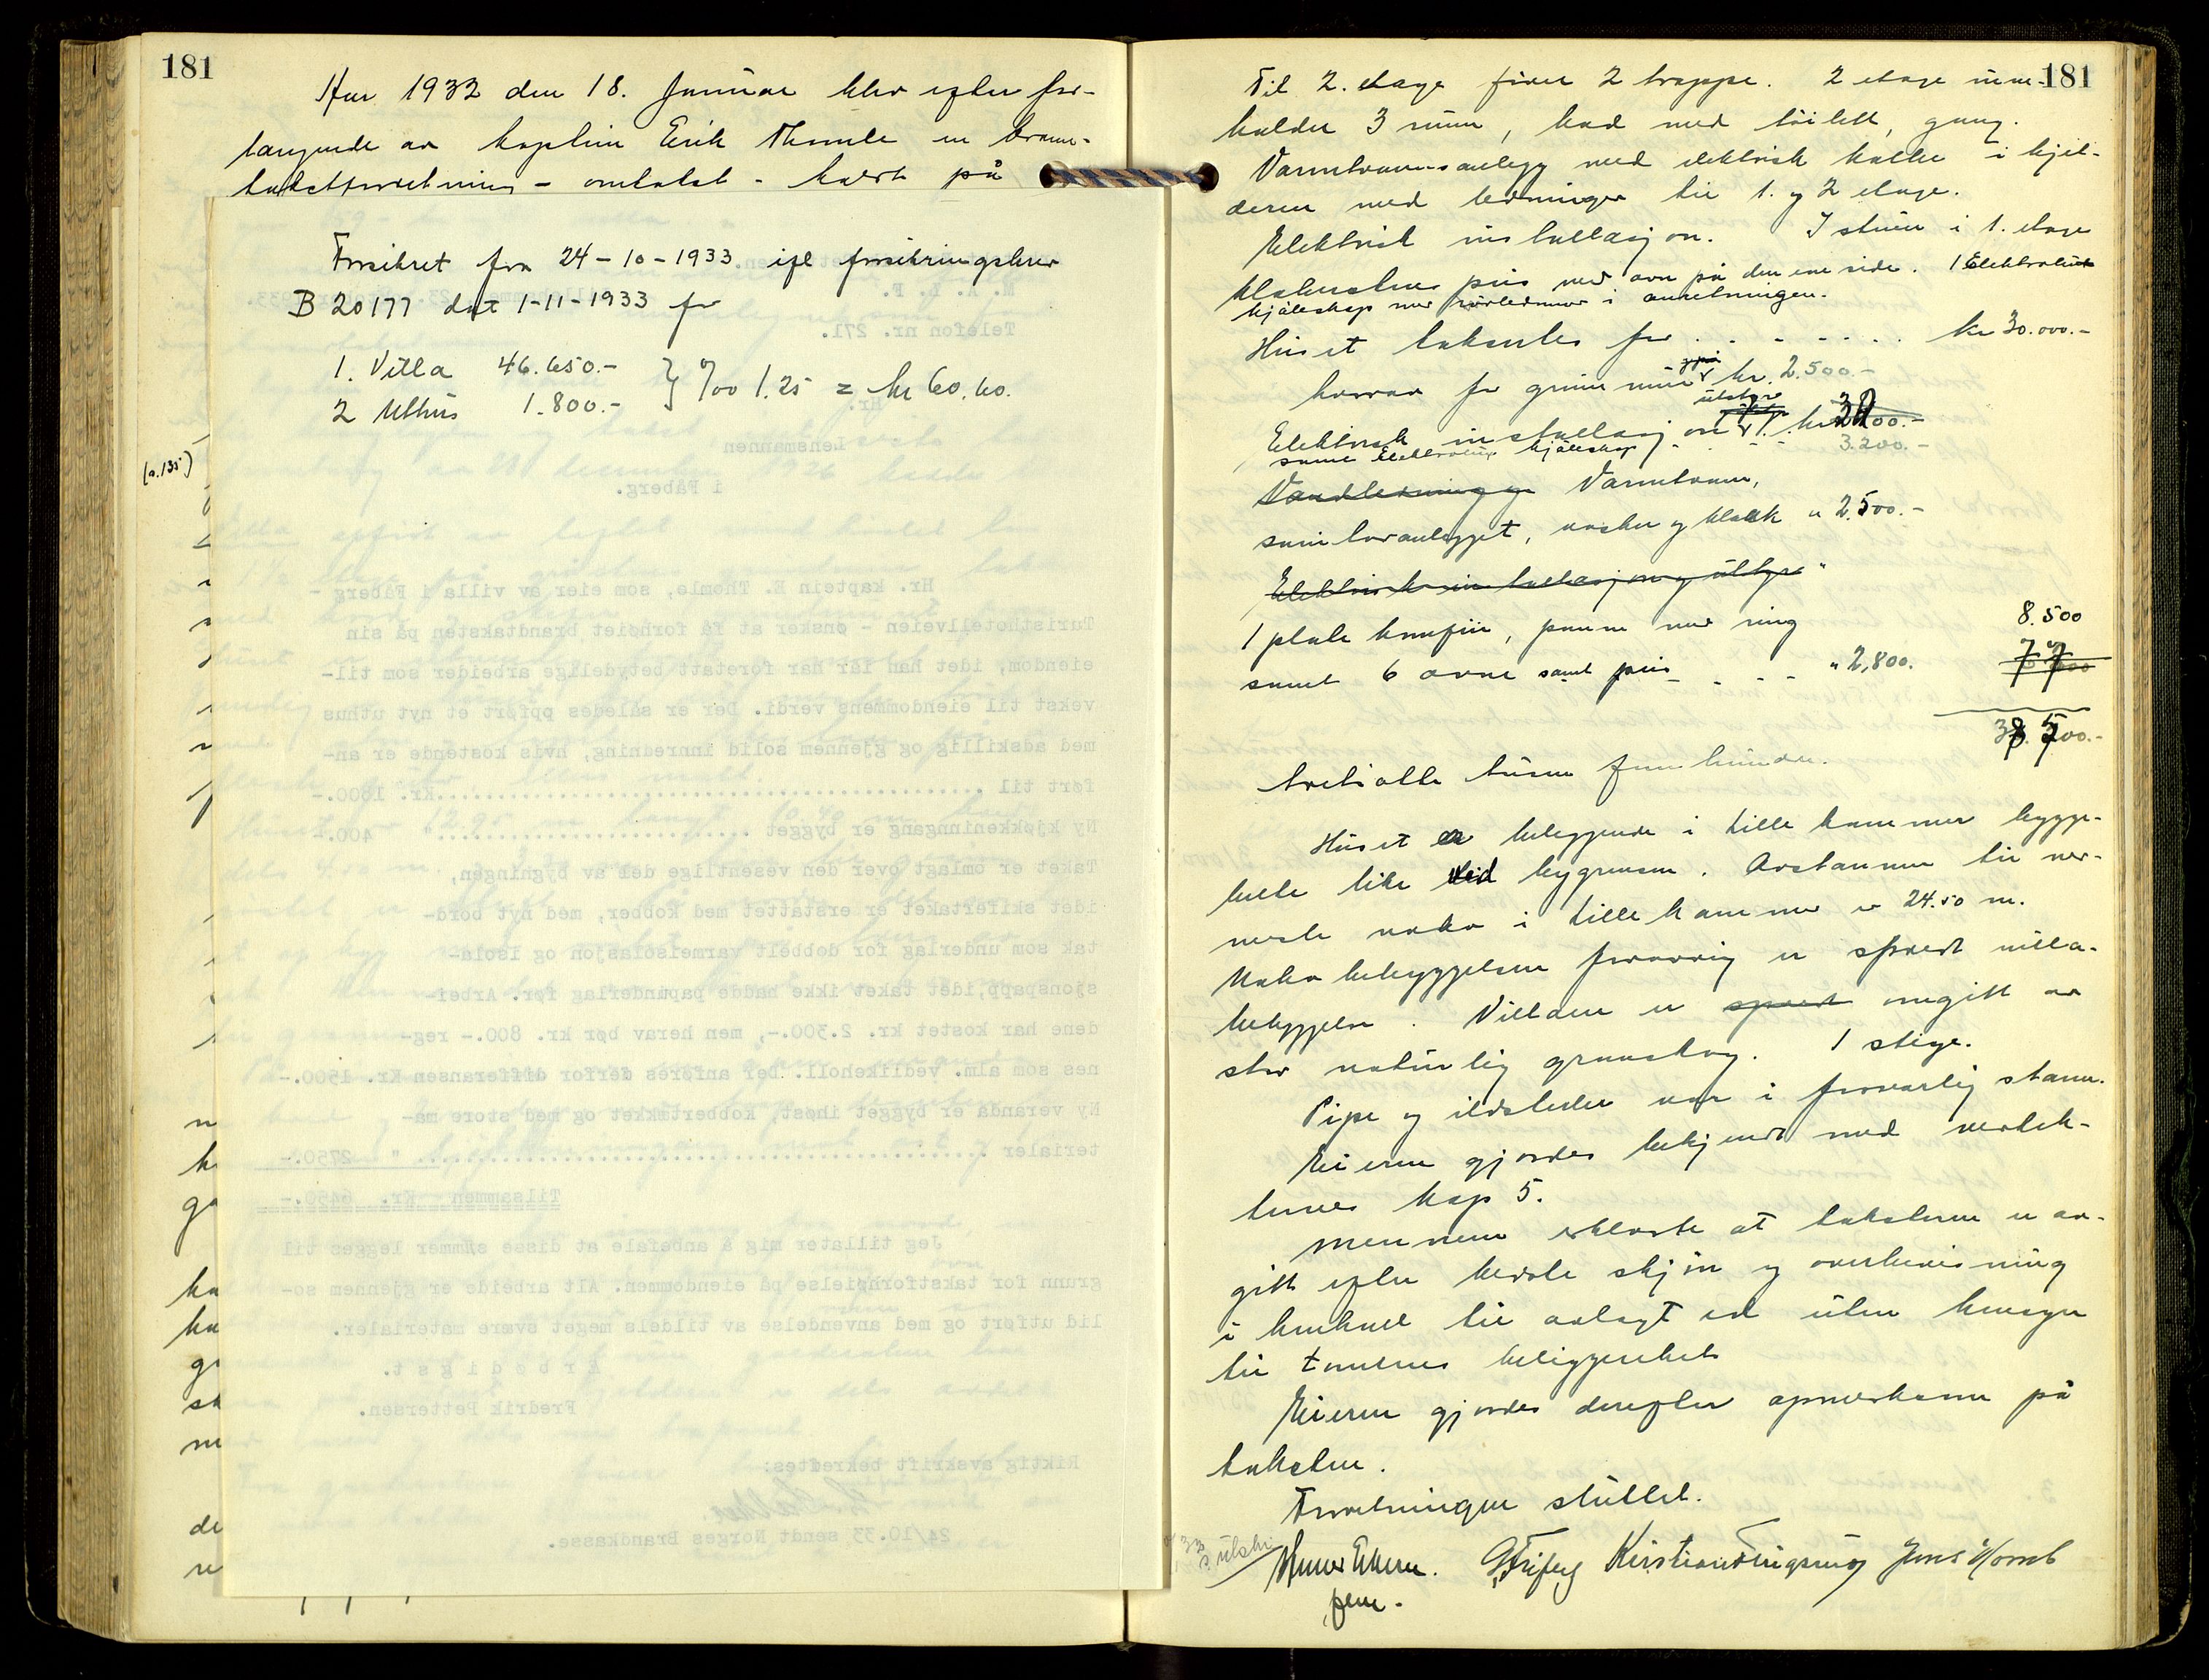 181
Aar 1932 den 18. Januar blev efter for-
langende av kaptein Erik Thomle en brann-
takstforretning - omtakst - holdt på
Forsikret fra 24-10-1933 ifl forsikringsbrev
B 20177 dat 1-11-1933 for
1. Villa 46.650.-
2 Uthus 1.800.- } ‰ 1.25 = kr 60.60.
(s.135)
Telefon nr. 271.
Hr.
Lensmannen
i Fåberg.
Hr. kaptein E. Thomle, som eier av villa i Fåberg -
Turisthotellveien - ønsker at få forhøiet brandtaksten på sin
eiendom, idet han iår har foretatt betydelige arbeider som til-
vekst til eiendommens verdi. Der er således opført et nyt uthus
med adskillig og gjennem solid innredning, hvis kostende er an-
ført til ........ Kr. 1800.-
Ny kjøkkeninngang er bygget ........ " 400.-
Taket er omlagt over den vesentlige del av bygningen,
idet skifertaket er erstattet med kobber, med nyt bord-
tak som underlag for dobbelt varmeisolasjon og isola-
sjonspapp, idet taket ikke hadde papunderlag før. Arbei-
dene har kostet kr. 2.300.-, men herav bør kr. 800.- reg-
nes som alm. vedlikeholl. Der anføres derfor differansen Kr. 1500.-
Ny veranda er bygget ihøst, kobbertækket og med store ma-
terialer ........ " 2750.-
Tilsammen Kr. 6450.-
Jeg tillater mig å anbefale at disse summer legges til
grunn for takstforhøielse på eiendommen. Alt arbeide er gjennem so-
lid utført og med anvendelse av tildels meget svære materialer.
Ærbødigst.
Fredrik Pettersen.
Riktig avskrift bekreftes:
24/10.33 sendt Norges Brandkasse.
181
Til 2. etage fører 2 trappe. 2 etage inne-
holder 3 rum, bad med toilett, gang.
Varmtvannsanlegg med elektrisk kolbe i kjel-
deren med ledninger til 1. og 2 etage.
Elektrisk installasjon. I stuen i 1. etage
klebersten peis med ovn på den ene side. 1 Elektrolux
kjøleskap med rørledninger i anretningen.
Huset takseres for . . . . . . . kr 30.000.-
hvorav for grunnmur kr. 2.500.-
Elektrisk installasjon og utstyr kr 3200.-
samt Elektrolux kjøleskap . . . 3.200.-
Vandledning og Varmtvann,
sanitæranlegget, vasker og kloakk " 2.500.-
Elektrisk installasjon og utstyr "
1 plate komfur, panne med ring
samt 6 ovne samt peis . . . " 2,800.
8.500
38.500.-
trettiotte tusen femhundre.
Huset er beliggende i Lillehammer bygge-
belte like ved bygrensen. Avstannen til nær-
meste nabo i Lillehammer er 24.50 m.
Nabobebyggelsen forøvrig er spredt villa-
bebyggelse. Villaen er spredt omgitt av
stor naturlig granskog. 1 stige.
Pipe og ildsteder var i forsvarlig stann.
Eieren gjordes bekjendt med vedtek-
tenes kap 5.
Mennene erklærte at taksterne er av-
gitt efter bedste skjøn og overbevisning
i henhold til avlagt ed uten hensyn
til tomtens beliggenhet
Eieren gjordes derefter opmerksom på
taksten.
Forretningen sluttet.
Kristian Flugsrud Jens Hovde